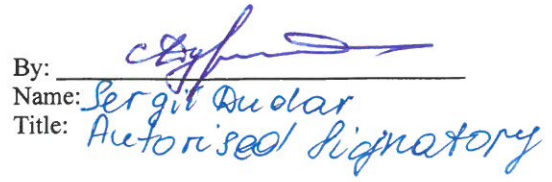 By:
Name: Sergii Dudar
Title: Autorised Signatory